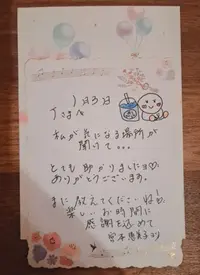 1月3日
私が気になる場所が
聞けて...
とても助かりました
ありがとうございます。
また 教えてください
楽しい お時間に
感謝を込めて